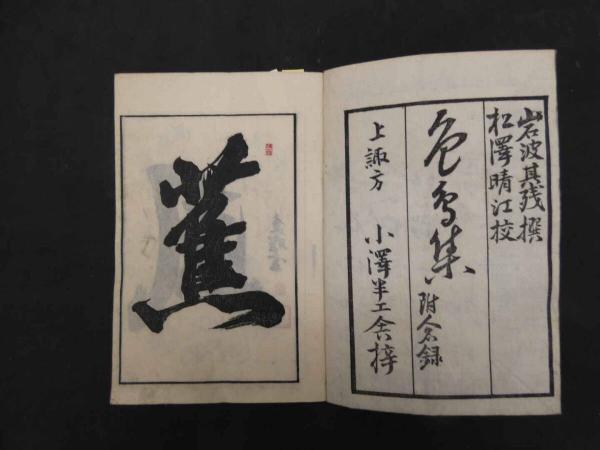 岩波其残撰
松澤晴江校
色鳥集
附余録
上諏方
小澤半工舎梓
蕉